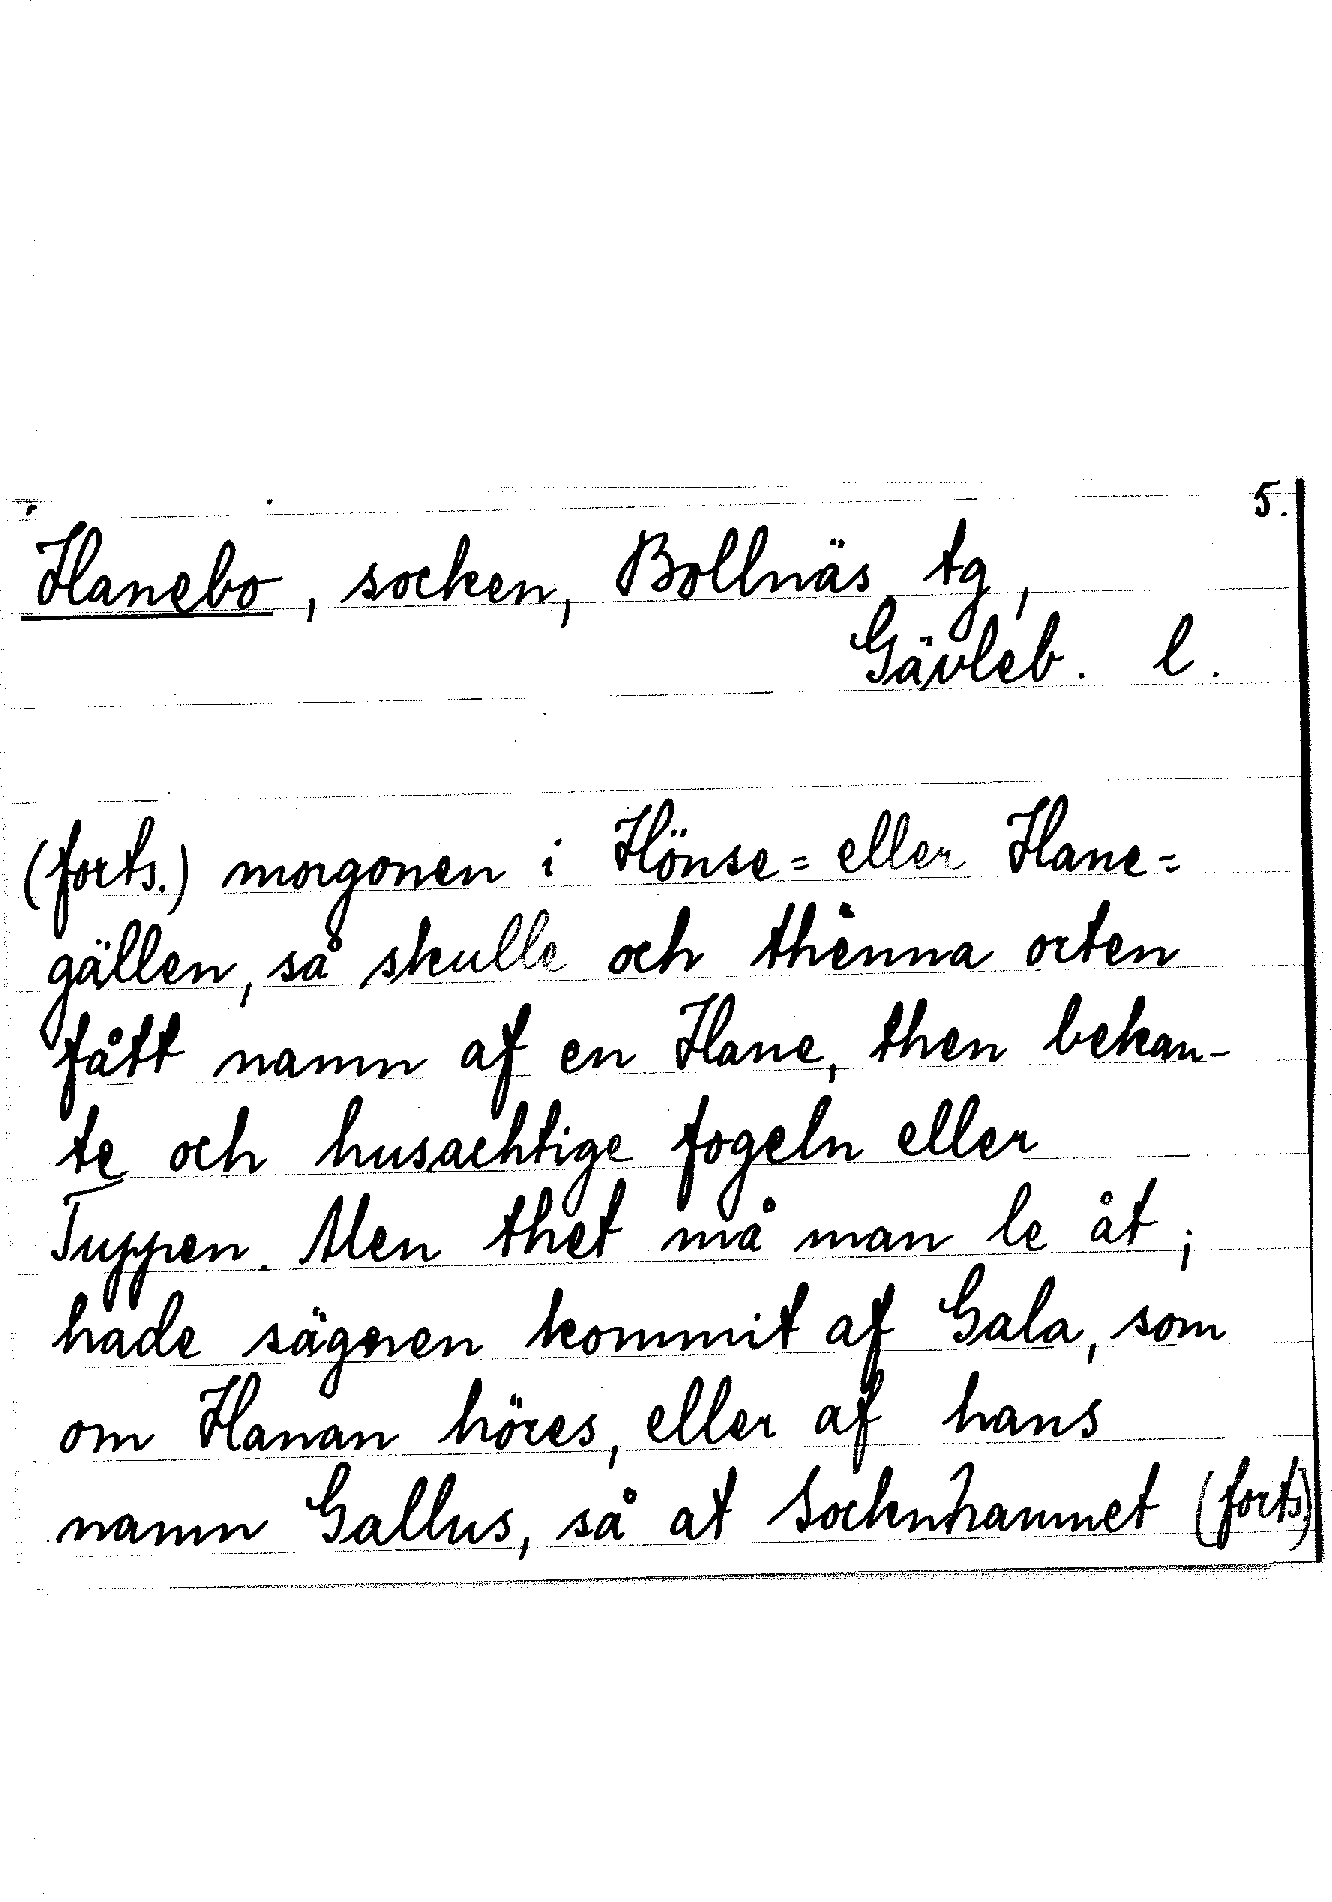 5.
Hanebo, socken, Bollnäs tg,
Gävleb. l.
(forts.) morgonen i Hönse= eller Hane=
gällen, så skulle och thenna orten
fått namn af en Hane, then bekan-
te och husachtige fogeln eller
Tuppen. Men thet må man le åt;
hade sägnen kommit af Gala, som
om Hanan höres, eller af hans
namn Gallus, så at Socknhamnet (forts.)